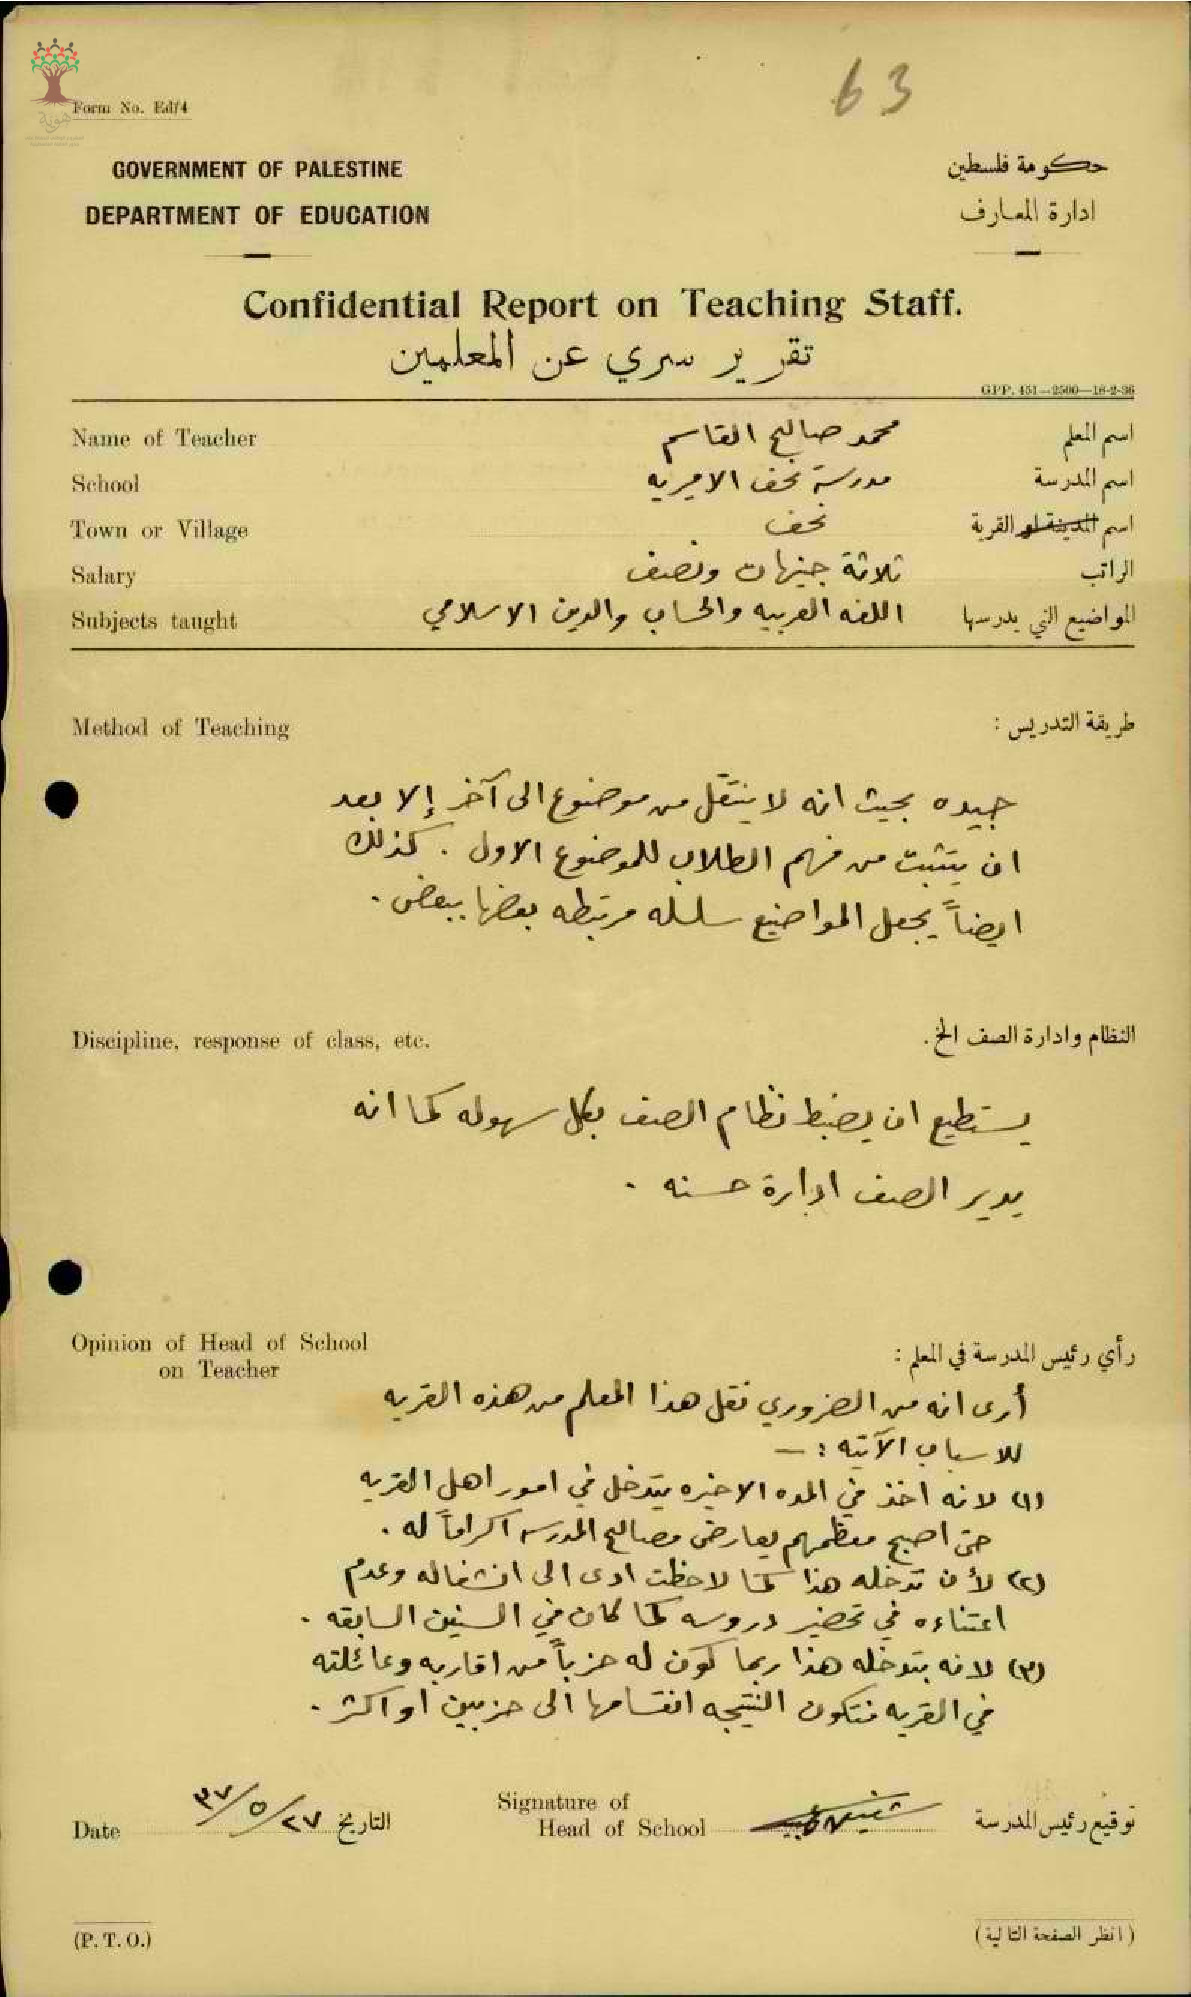 63
هوية
Form No. Ed/4
GOVERNMENT OF PALESTINE
حكومة فلسطين
DEPARTMENT OF EDUCATION
ادارة المعارف
Confidential Report on Teaching Staff.
تقرير سري عن المعلمين
GPP. 451—2500—18-2-36
Name of Teacher محمد صالح القاسم اسم المعلم
School مدرسة نحف الاميريه اسم المدرسة
Town or Village نحف اسم المدينة او القرية
Salary ثلاثة جنيهات ونصف الراتب
Subjects taught اللغه العربيه والحساب والدين الاسلامي المواضيع التي يدرسها
Method of Teaching طريقة التدريس :
جيده بحيث انه لا ينتقل من موضوع الى آخر إلا بعد
ان يتثبت من فهم الطلاب للموضوع الاول . كذلك
ايضاً يجعل المواضيع سلسله مرتبطه بعضها ببعض .
Discipline, response of class, etc. النظام وادارة الصف الخ.
يستطيع ان يضبط نظام الصف بكل سهوله كما انه
يدير الصف ادارة حسنه .
Opinion of Head of School
on Teacher
رأي رئيس المدرسة في المعلم :
أرى انه من الضروري نقل هذا المعلم من هذه القريه
للاسباب الآتيه : —
(١) لانه اخذ في المده الاخيره يتدخل في امور اهل القريه
حتى اصبح معظمهم يعارض مصالح المدرسه اكراماً له .
(٢) لأن تدخله هذا كما لاحظت ادى الى انشغاله وعدم
اعتناءه في تحضير دروسه كما كان في السنين السابقه .
(٣) لانه بتدخله هذا ربما كون له حزباً من اقاربه وعائلته
في القريه فتكون النتيجه انقسامها الى حزبين او اكثر .
Date ٢٧/٥/٣٧ التاريخ
Signature of
Head of School
توقيع رئيس المدرسة
(P. T. O.)
(انظر الصفحة التالية)